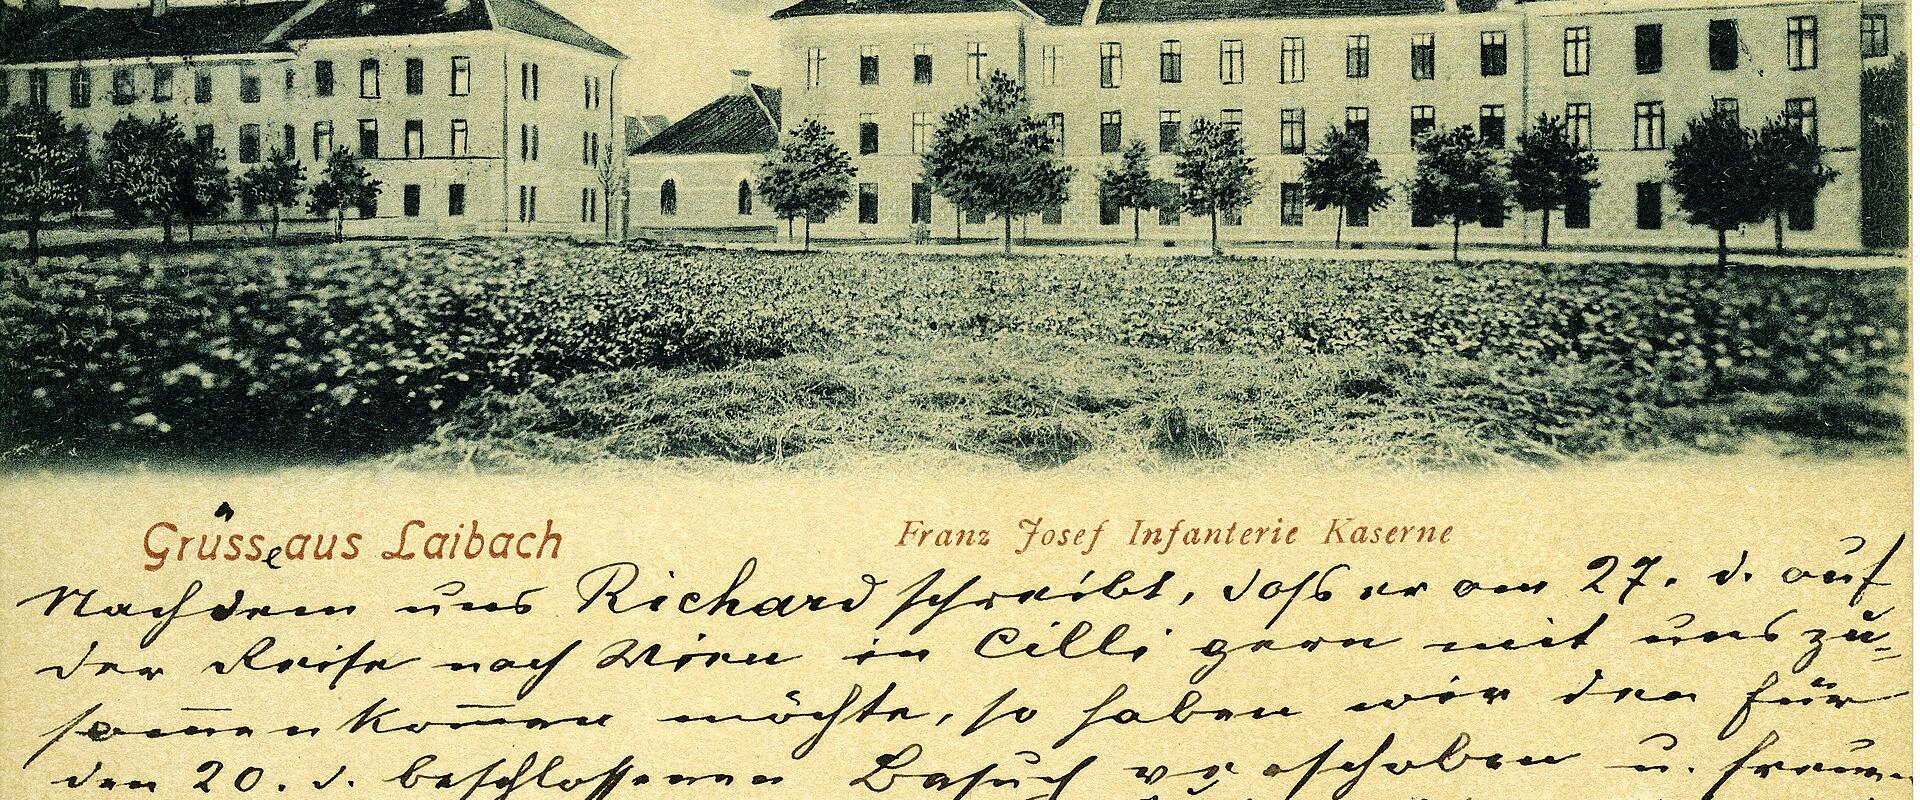 Grüsse aus Laibach
Franz Josef Infanterie Kaserne
Nachdem uns Richard schreibt, daß er am 27. d. auf
der Reise nach Wien in Cilli gern mit uns zu=
sam̅enkom̅en möchte, so haben wir den für
den 20. d. beschlossenen Besuch verschoben u. freuen